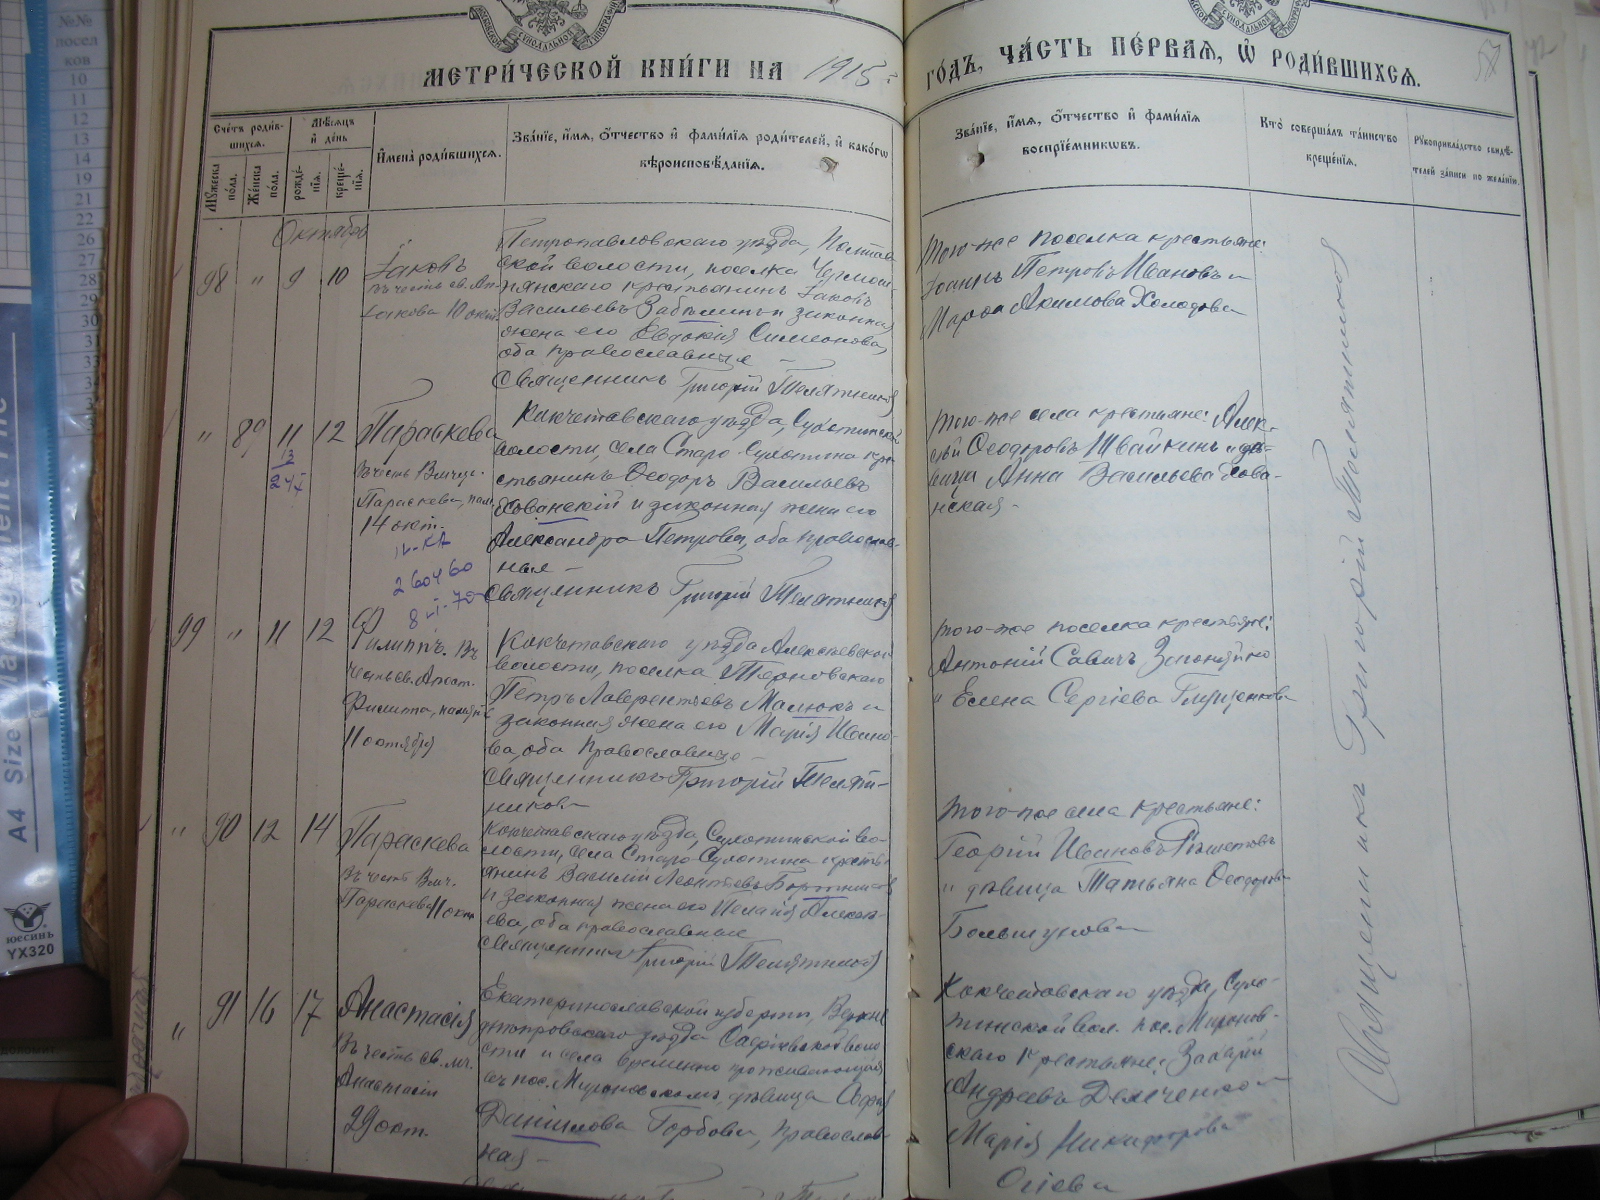 МЕТРИ́ЧЕСКОЙ КНИ́ГИ НА 1915 г.
ГО́ДЪ, ЧА́СТЬ ПЕ́РВАѦ, Ѡ҆ РОДИ́ВШИХСѦ.
Сче́тъ роди́в-
шихсѧ.
Мѣ́сѧцъ
и҆ де́нь
И҆мена̀ роди́вшихсѧ.
Зва́нїе, и҆́мѧ, ѻ҆́тчество и҆ фами́лїѧ роди́телей, и҆ како́гѡ
вѣроисповѣ́данїѧ.
Зва́нїе, и҆́мѧ, ѻ҆́тчество и҆ фами́лїѧ
воспрїе́мникѡвъ.
Кто̀ соверша́лъ та́инство
креще́нїѧ.
Рꙋкоприкла́дство свидѣ́-
телей за́писи по жела́нїю.
Мꙋ́жеска
по́ла.
Же́нска
по́ла.
рожде́-
нїѧ.
креще́-
нїѧ.
Октябрь
98 " 9 10
Іаковъ
въ честь св. Ап.
Іакова
Петропавловскаго уѣзда, Полтав-
ской волости, поселка
крестьянинъ Іаковъ
Васильевъ и законная
жена его Евдокія Симеонова,
оба православные
Священникъ Григорій Телятниковъ
Того-же поселка крестьяне:
Іоаннъ Петровъ Ивановъ и
Марфа Акимова Холодова
" 89 11 12
13
Параскева
въ честь Влмуч.
Параскевы, пам.
14 окт.
260460
8-I-70
Кокчетавскаго уѣзда, Сухотинской
волости, села Старо-Сухотина кре-
стьянинъ Ѳеодоръ Васильевъ
Хованскій и законная жена его
Александра Петрова, оба православ-
ные
Священникъ Григорій Телятниковъ
Того-же села крестьяне: Алек-
сѣй Ѳеодоровъ Швайкинъ и дѣ-
вица Анна Васильева Хова-
нская
99 " 11 12
Филиппъ. Въ
честь св. Апост.
Филиппа, память
11 октября
Кокчетавскаго уѣзда Алексѣевской
волости, поселка Терновскаго
Петръ Лаврентьевъ Малюкъ и
законная жена его Марія Ивано-
ва, оба православные
Священникъ Григорій Телят-
никовъ
Того-же поселка крестьяне:
Антоній Савичъ
и Елена Сергіева Глущенкова
" 90 12 14
Параскева
въ честь Влмч.
Параскевы
Кокчетавскаго уѣзда, Сухотинской во-
лости, села Старо-Сухотина кресть-
янинъ Василій Леонтьевъ
и законная жена его Пелагія Алексѣ-
ева, оба православные
Священникъ Григорій Телятниковъ
Того-же села крестьяне:
Георгій Ивановъ Рѣшетовъ
и дѣвица Татьяна Ѳеодорова
Большунова
" 91 16 17
Анастасія
въ честь св. мч.
Анастасіи
29 окт.
Екатеринославской губерніи, Верхне-
днѣпровскаго уѣзда
и села временно проживающая
въ пос. Мироновскомъ, дѣвица Софія
Данилова Горбова, православ-
ная
Кокчетавскаго уѣзда, Сухо-
тинской вол. пос. Миронов-
скаго крестьяне: Захарій
Андреевъ Демченко и
Марія Никифорова
Священникъ Григорій Телятниковъ
№№
посел
ков
10
11
12
13
14
19
21
22
26
27
28
29
30
31
33
A4 Size
юесинъ
YX320